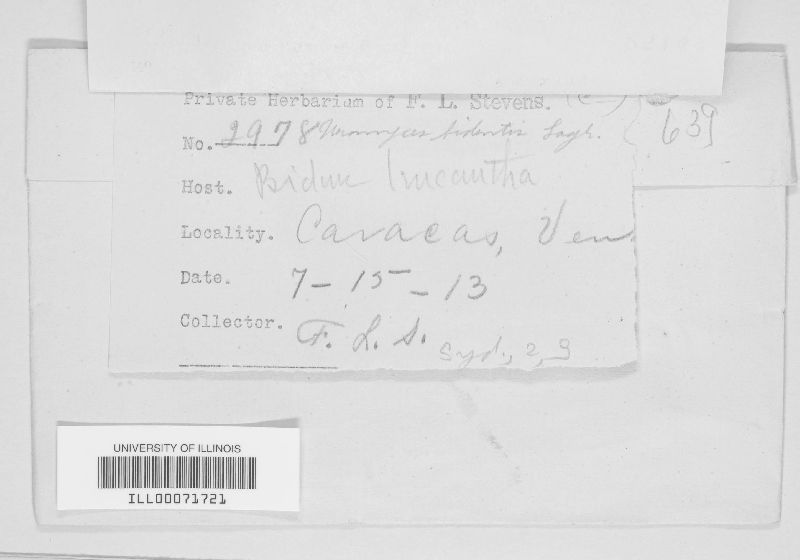 Private Herbarium of F. L. Stevens.
No. 2978 Uromyces bidentis Lagh. 639
Host. Bidens leucantha
Locality. Caracas, Ven.
Date. 7-15-13
Collector. F. L. S.
Syd., 2, 9
UNIVERSITY OF ILLINOIS
ILL00071721